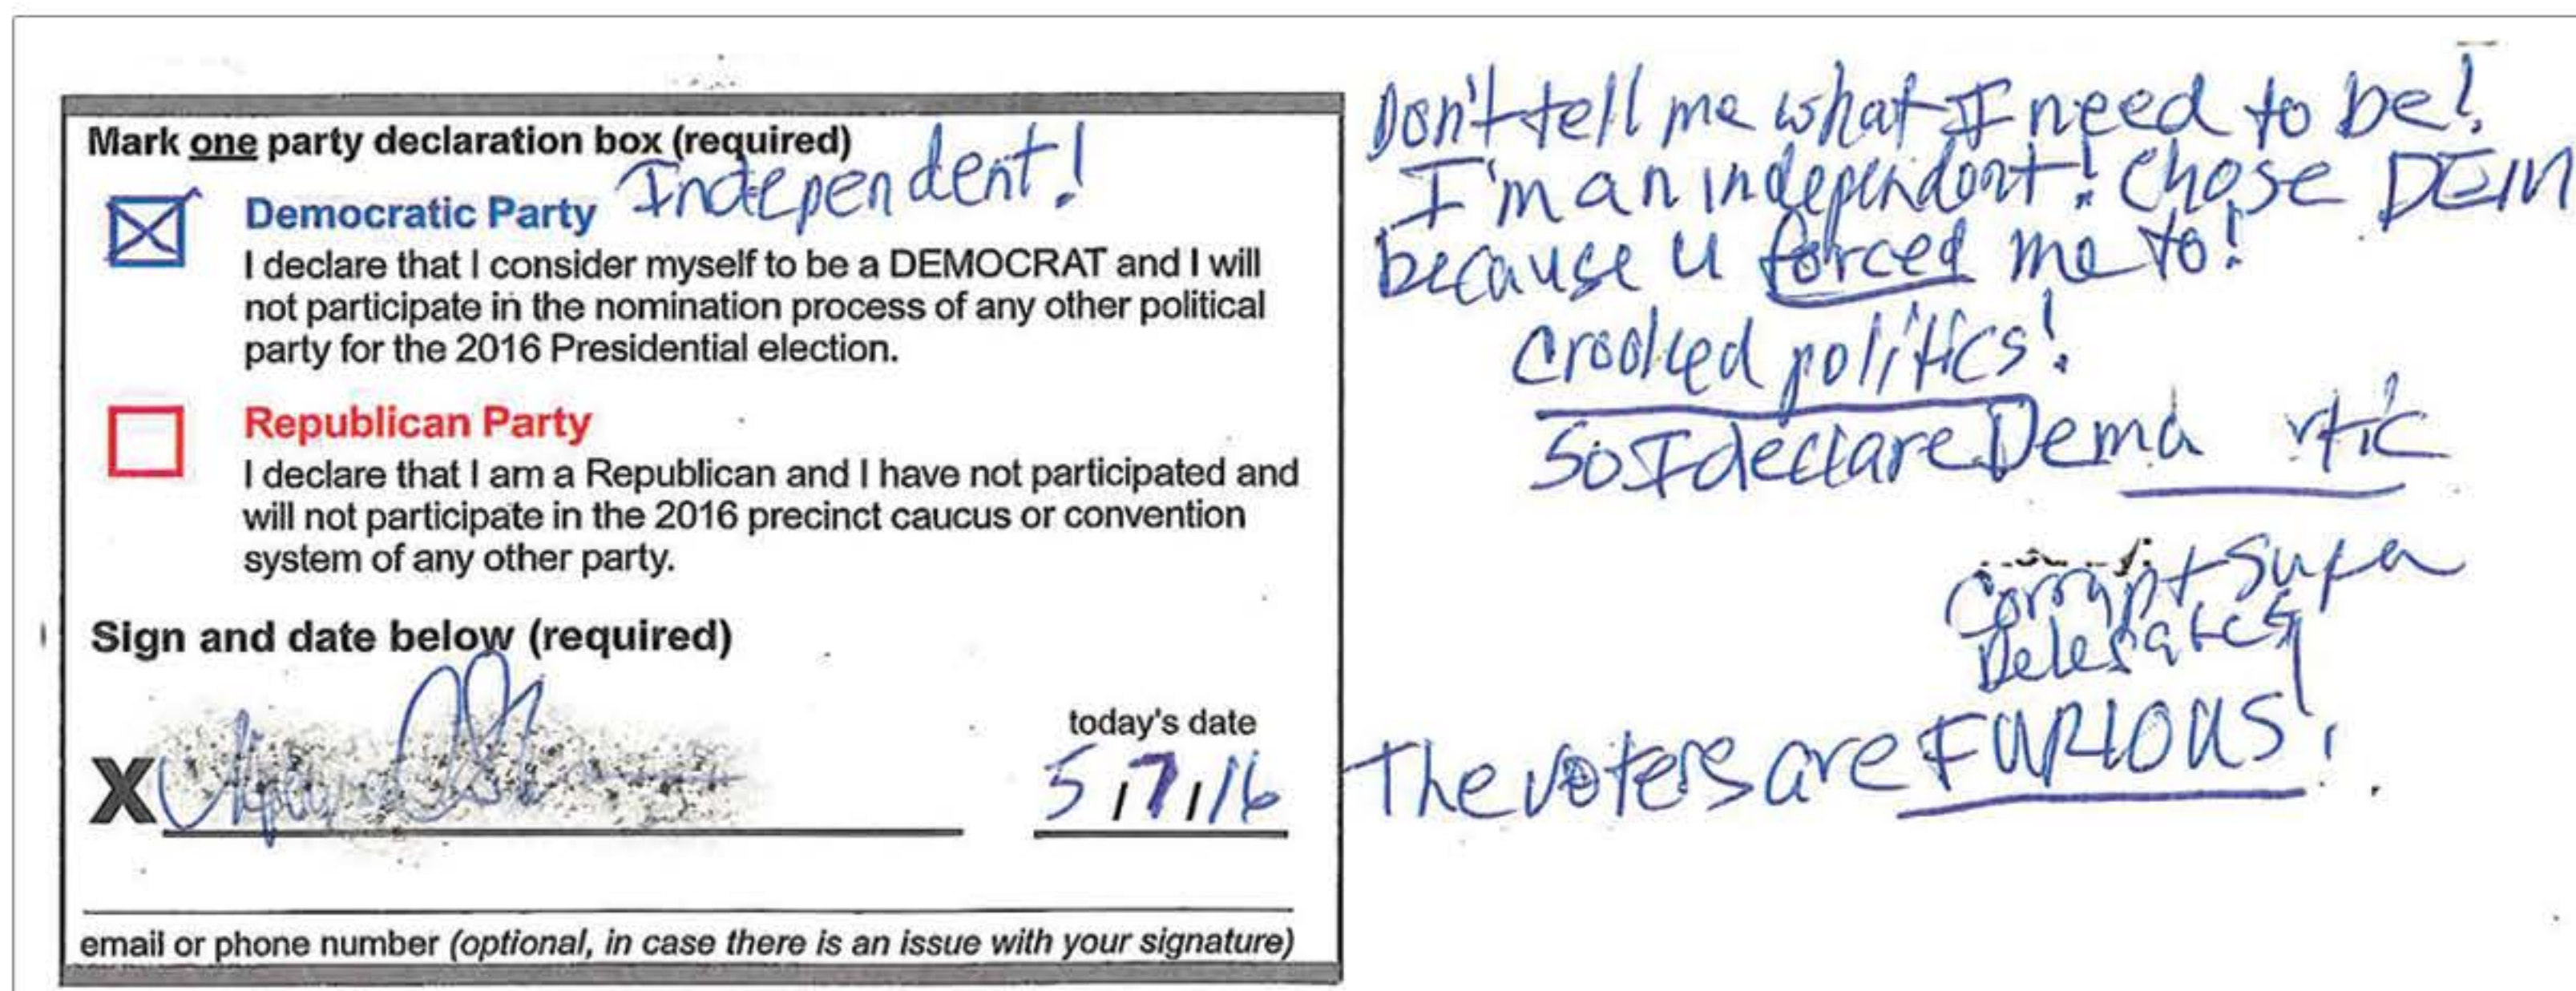 Mark one party declaration box (required)
Independent!
Democratic Party
I declare that I consider myself to be a DEMOCRAT and I will
not participate in the nomination process of any other political
party for the 2016 Presidential election.
Republican Party
I declare that I am a Republican and I have not participated and
will not participate in the 2016 precinct caucus or convention
system of any other party.
Sign and date below (required)
X
today's date
5/7/16
email or phone number (optional, in case there is an issue with your signature)
Don't tell me what I need to be!
I'm an independont! Chose DEM
because u forced me to!
Crooked politics!
So I declare
Corrupt Super
Delegates
The voters are FURIOUS!